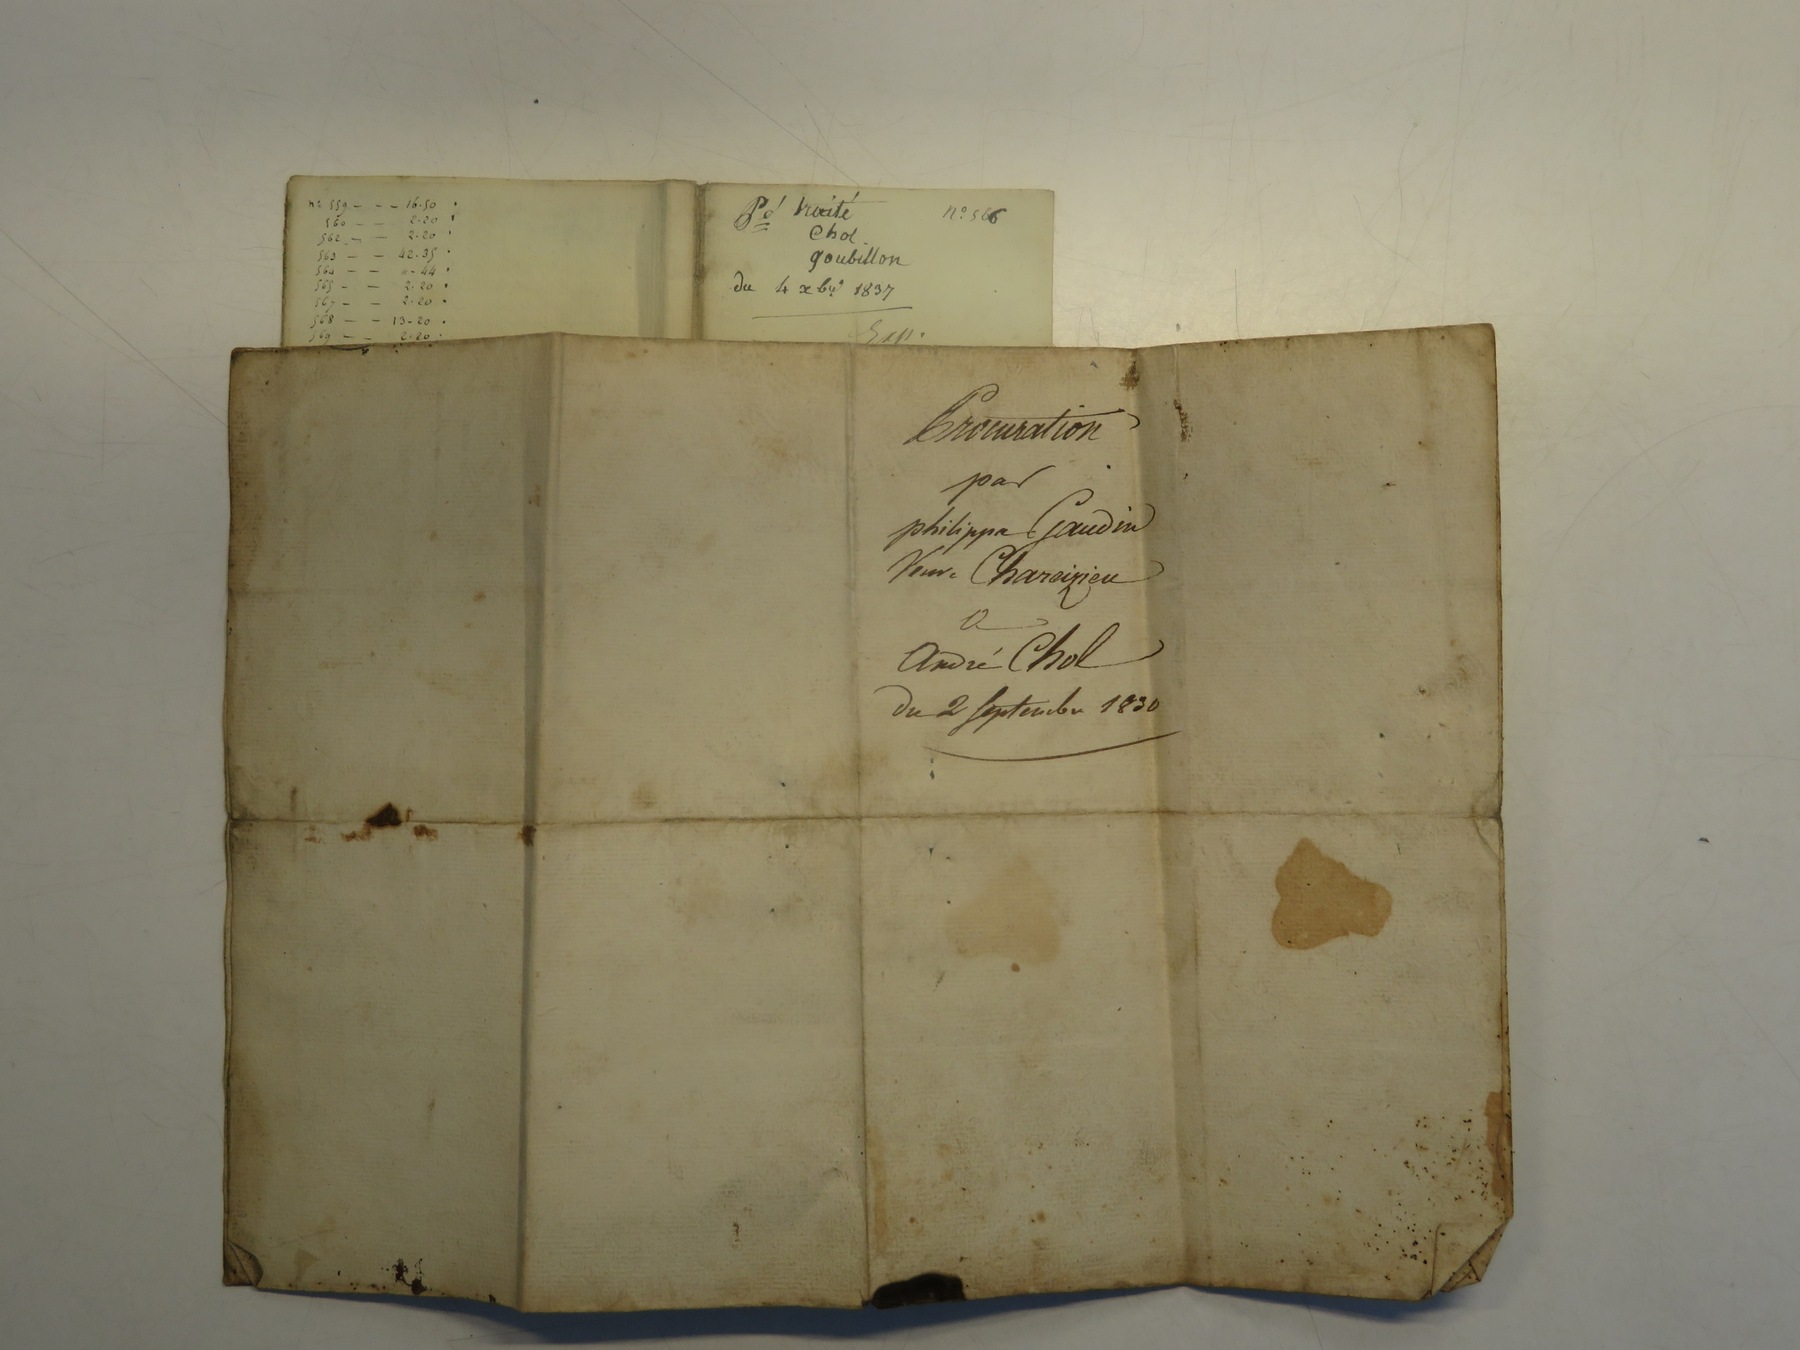 no 559 - - - 16.50
560 - - 2.20
562 - - 2.20
563 - - 42.35
564 - - 0-44
565 - - 2.20
567 - - 2.20
568 - - 13-20
569 - - 2.20
Pé traité
Chol
goubillon
du 4 xbre 1837
No 566
Exp.
Procuration
par
philippa Gaudin
Veuve Charezieu
a
André Chol
du 2 Septembre 1830